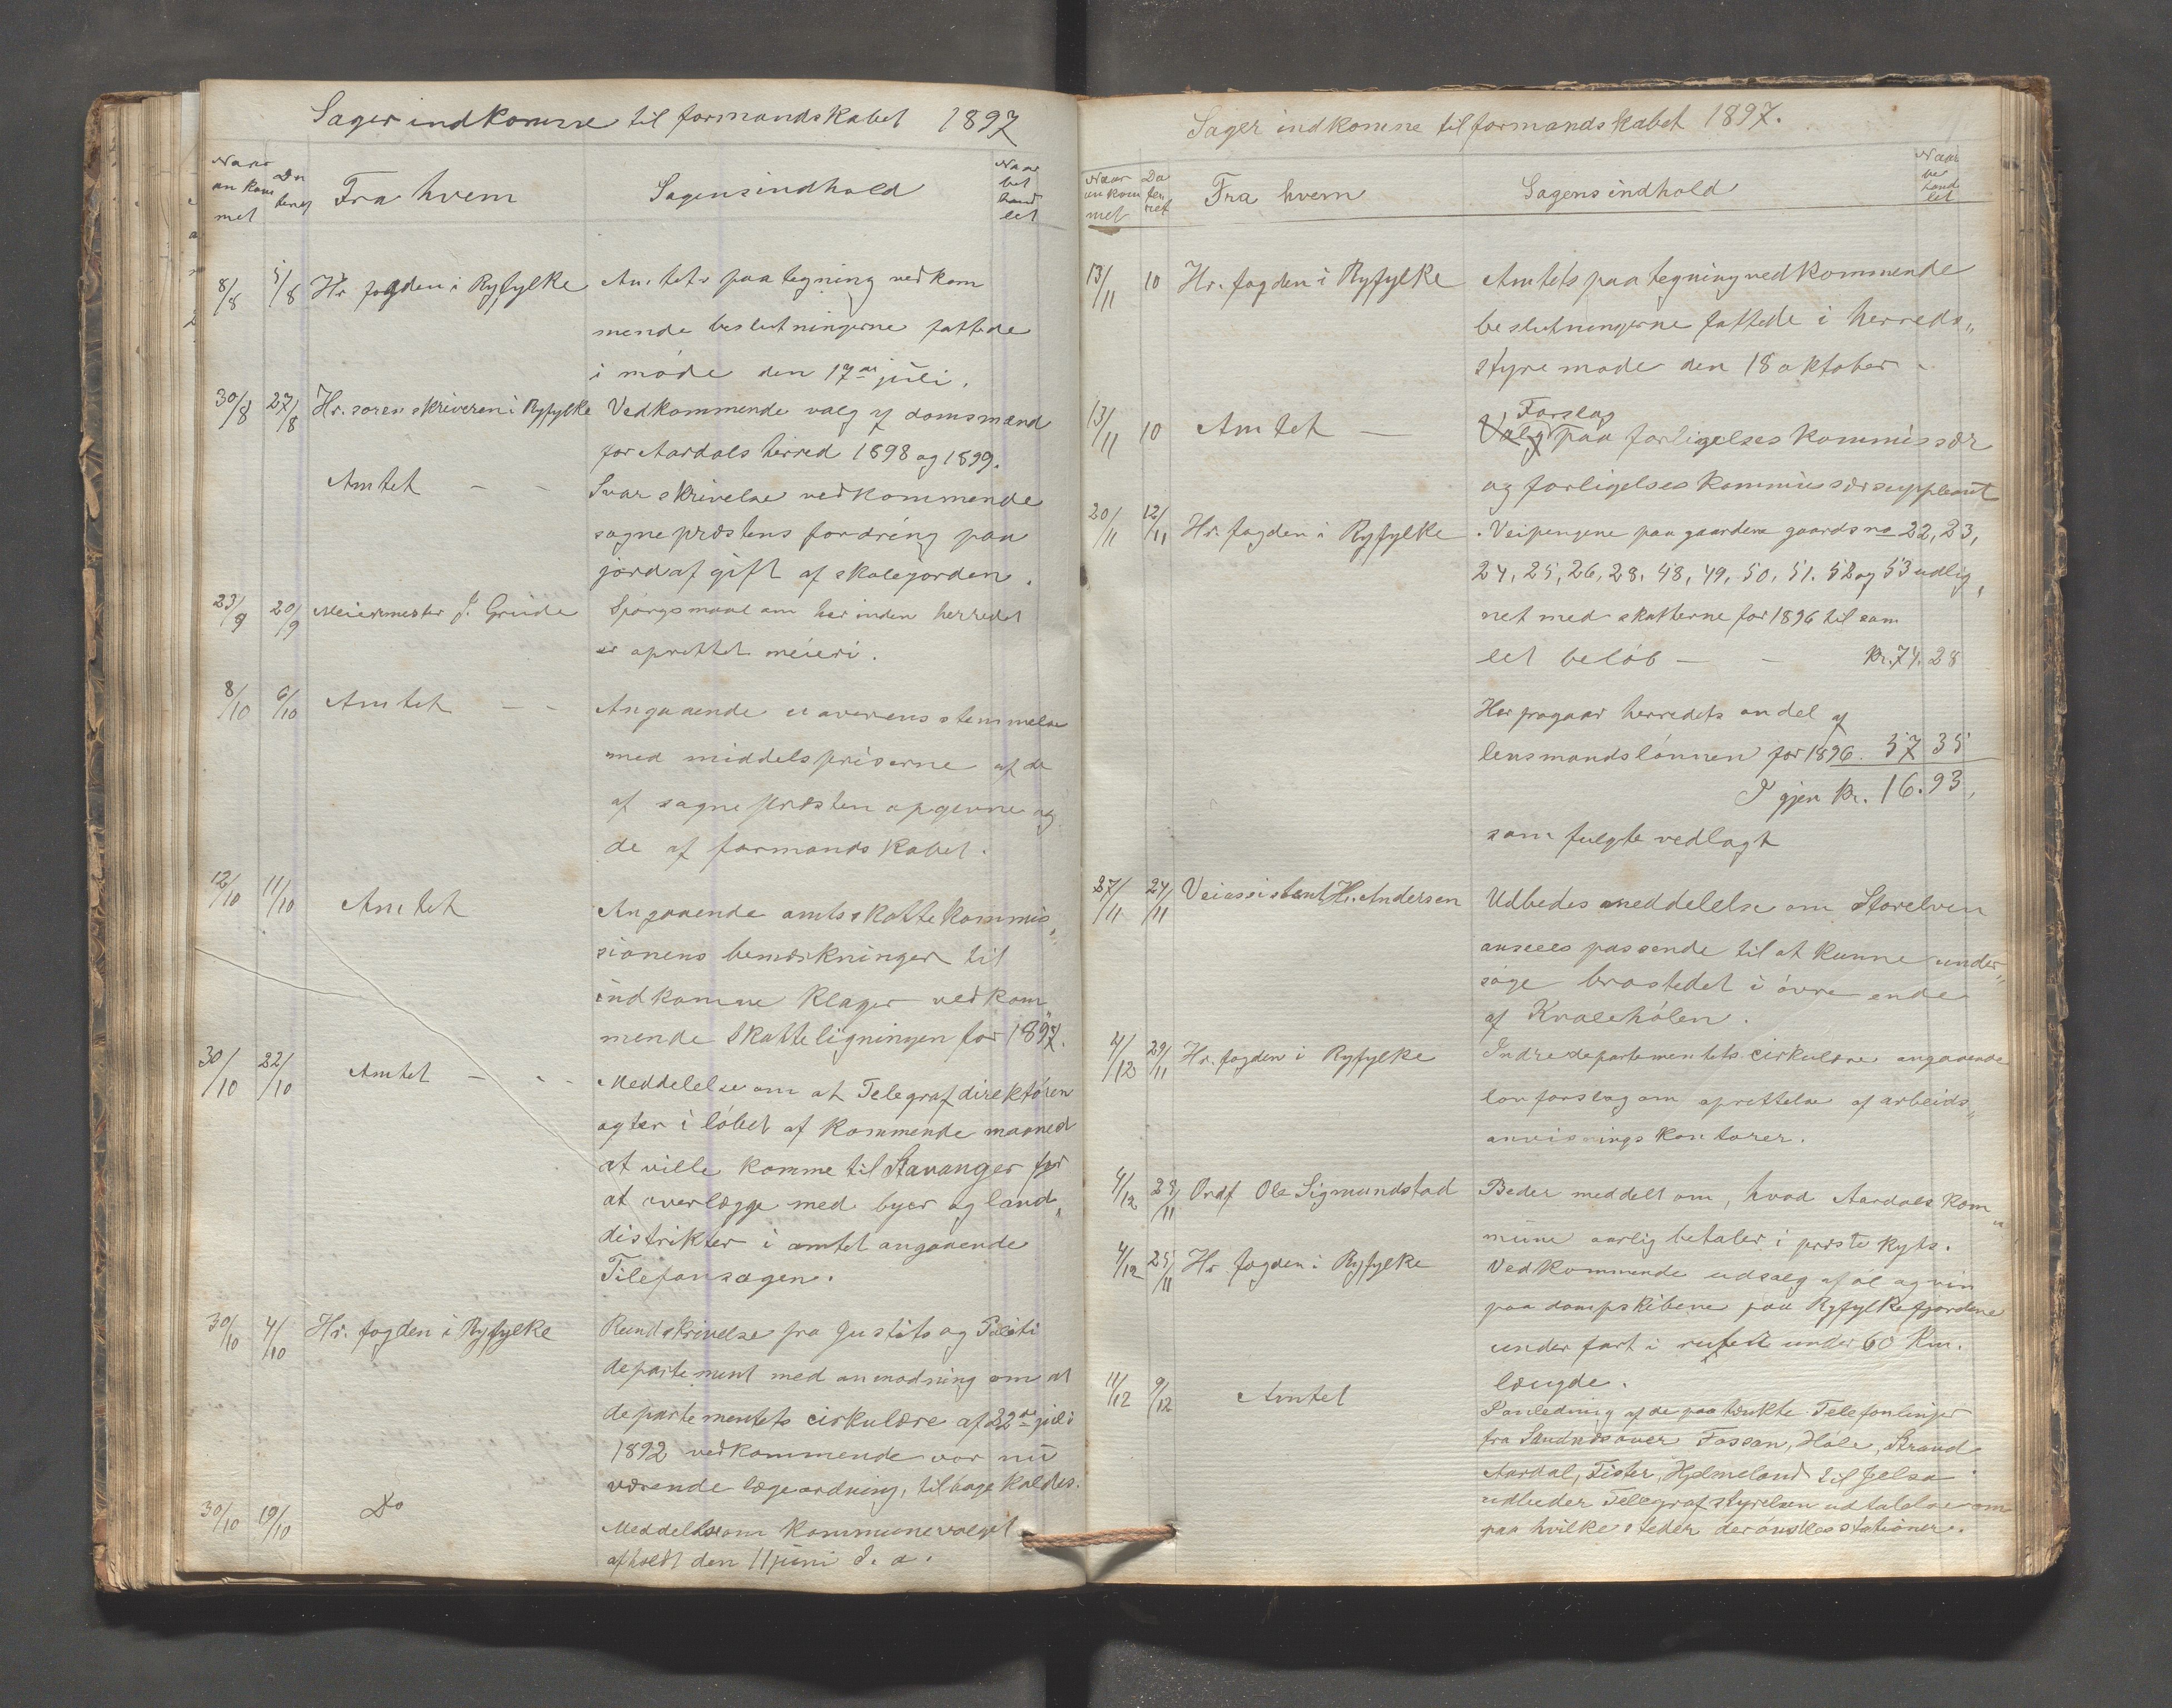 Sager indkomne til formandskabet 1897
Naar ankommet
Dateret
Fra hvem
Sagens indhold
Naar behandlet
8/8 5/8 Hr fogden i Ryfylke Amtets paategning vedkom
mende beslutningerne fattede
i møde den 17de juli.
30/8 27/8 Hr. sorenskriveren i Ryfylke Vedkommende valg af domsmænd
for Aardals herred 1898 og 1899.
Amtet - - Svarskrivelse vedkommende
sogneprestens fordring paa
jordafgift af skolejorden.
23/9 20/9 Meiermester J. Grude Spørgsmaal om her inden herredet
er oprettet meieri.
8/10 6/10 Amtet - - Angaaende uoverensstemmelse
med middelspriserne af de
af sognepresten opgivne og
de af formandskabet.
12/10 11/10 Amtet Angaaende amtsskattekommis„
sionens bemærkninger til
indkomne klager vedkom„
mende skatteligningen for 1897.
30/10 22/10 Amtet - - - Meddelelse om at Telegrafdirektøren
agter i løbet af kommende maaned
at ville komme til Stavanger for
at overlægge med byer og land„
distrikter i amtet angaaende
Telefonsagen.
30/10 4/10 Hr. fogden i Ryfylke Rundskrivelse fra Justits og Politi
departement med anmodning om at
departementets cirkulære af 22de juli
1892 vedkommende vor nu
værende lægeordning, tilbagekaldes.
30/10 19/10 Do Meddelelse om kommunevalget
afholdt den 11 juni d. a.
Sager indkomne til formandskabet 1897.
Naar ankommet
Dateret
Fra hvem
Sagens indhold
Naar behandlet
13/11 10 Hr. fogden i Ryfylke Amtets paategning vedkommende
beslutningerne fattede i herreds„
styremøde den 18 oktober.
13/11 10 Amtet — Forslag
Valg paa forligelseskommissær
og forligelseskommissærsuppleant
20/11 12/11 Hr. fogden i Ryfylke . Veipengene paa gaardene gaardsno 22, 23,
24, 25, 26, 28, 48, 49, 50, 51. 52 og 53 udlig„
net med skatterne for 1896 til sam
let beløb - - Kr. 74.28
Her fragaar herredets andel af
lensmandslønnen for 1896. 57 35
Igjen Kr. 16.93,
som fulgte vedlagt
27/11 24/11 Veiassistent H. Andersen Udbedes meddelelse om Storelven
ansees passende til at kunne under„
søge brostedet i øvre ende
af Kvalehølen.
4/12 29/11 Hr. fogden i Ryfylke Indredepartementets cirkulære angaaende
lovforslag om oprettelse af arbeids„
anvisningskontorer.
4/12 28/11 Ordf Ole Sigmundstad Beder meddelt om, hvad Aardals kom„
mune aarlig betaler i presteskyts.
4/12 25/11 Hr fogden i Ryfylke Vedkommende udsalg af øl og vin
paa dampskibene paa Ryfylkefjordene
under fart i ruter under 60 Km.
længde.
11/12 9/12 Amtet I anledning af de paatænkte Telefonlinjer
fra Sandnes over Fossan, Høle, Strand
Aardal, Fister, Hjelmeland til Jelsa
udbeder Telegrafstyrelsen udtalelse om
paa hvilke steder der ønskes stationer.